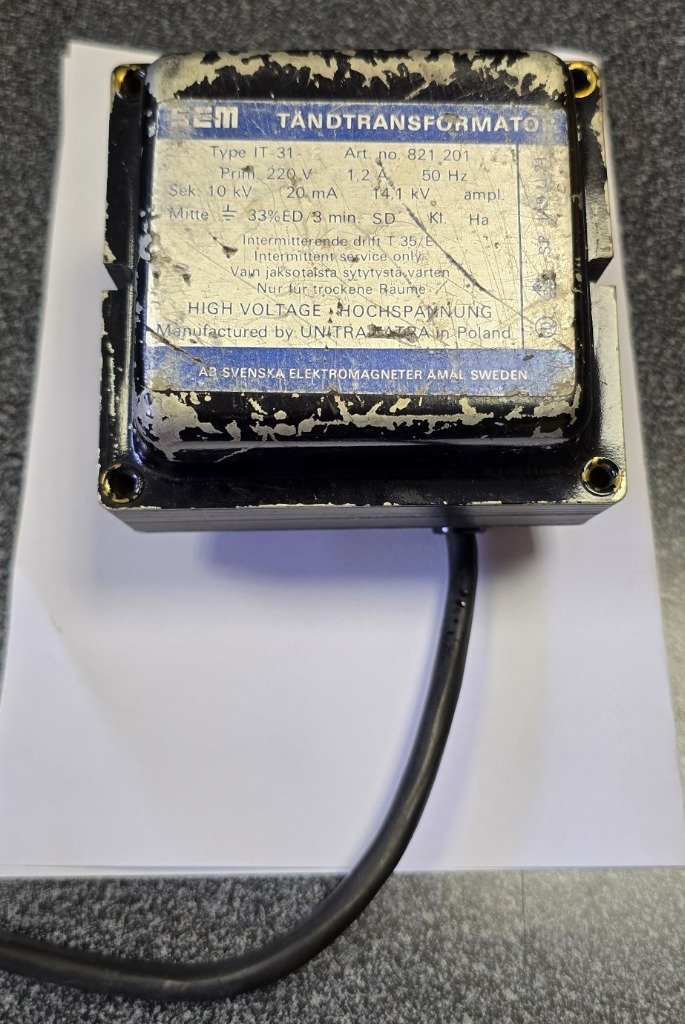 SEM TÄNDTRANSFORMATO
Type IT-31 Art. no. 821 201
Prim. 220 V 1,2 A 50 Hz
Sek. 10 kV 20 mA 14,1 kV ampl.
Mitte ⏚ 33%ED/3 min. SD Kl. Ha
Intermitterende drift T 35/E
Intermittent service only
Vain jaksotaista sytytystä varten
Nur für trockene Räume
HIGH VOLTAGE · HOCHSPANNUNG
Manufactured by in Poland
AB SVENSKA ELEKTROMAGNETER ÅMÅL SWEDEN